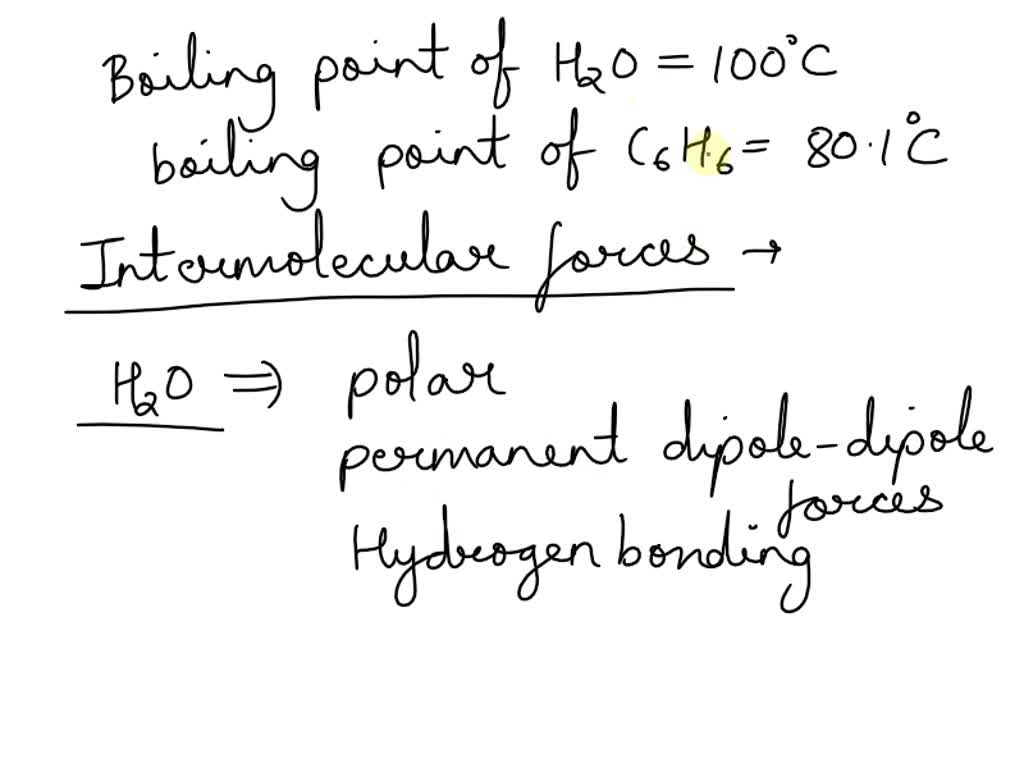 Boiling point of H₂O = 100°C
boiling point of C₆H₆ = 80.1°C
Intermolecular forces →
H₂O ⇒ polar
permanent dipole-dipole
forces
Hydrogen bonding